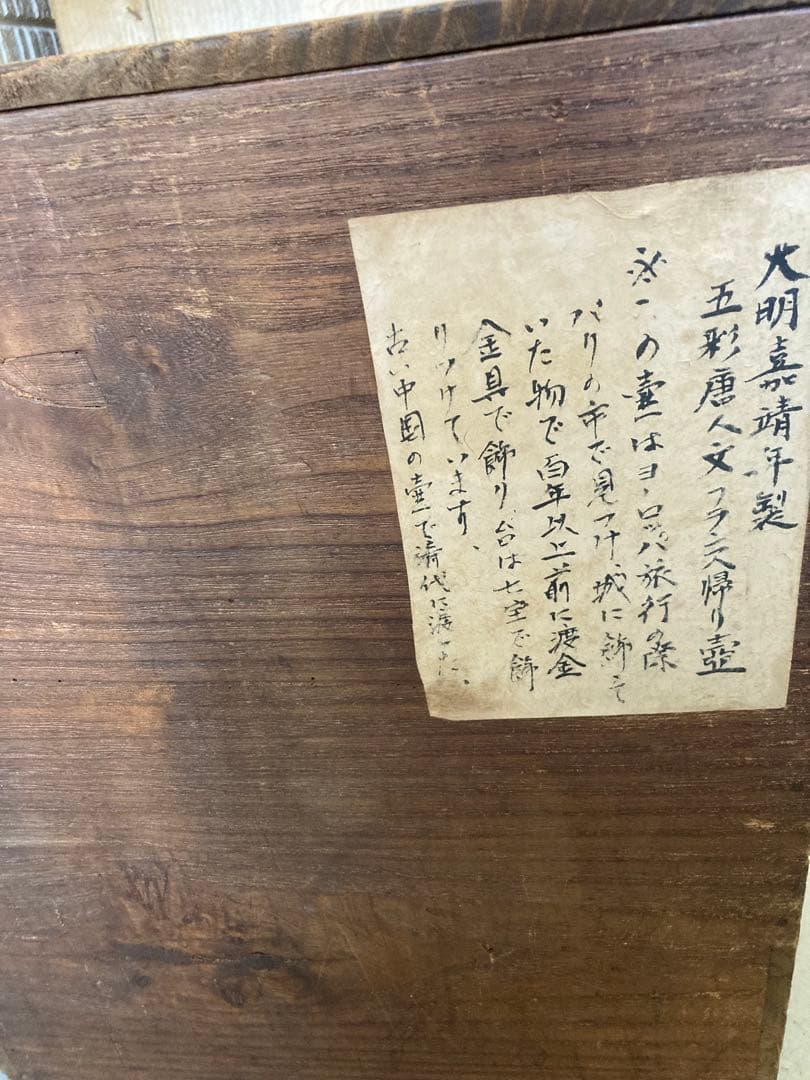 大明嘉靖年製
五彩唐人文フランス帰り壺
この壷はヨーロッパ旅行の際
パリの市で見つけ、城に飾って
いた物で百年以上前に渡金
金具で飾り、台は七宝で飾
りつけています、
古い中国の壷で清代に渡った、